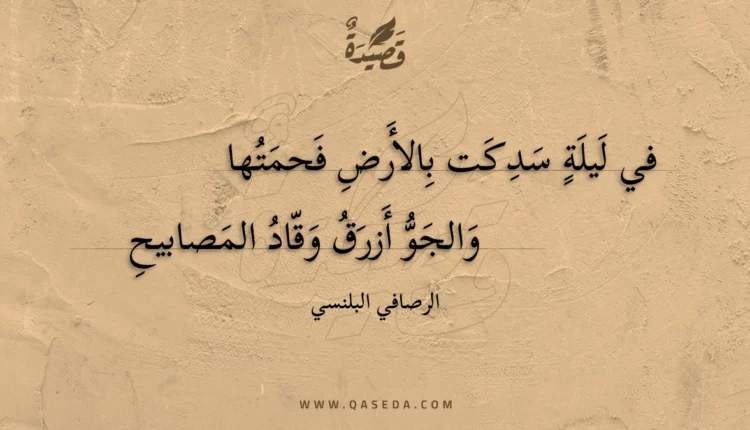 قَصِيدَةٌ
في لَيلَةٍ سَدِكَت بِالأَرضِ فَحمَتُها
وَالجَوُّ أَزرَقُ وَقّادُ المَصابيحِ
الرصافي البلنسي
WWW.QASEDA.COM